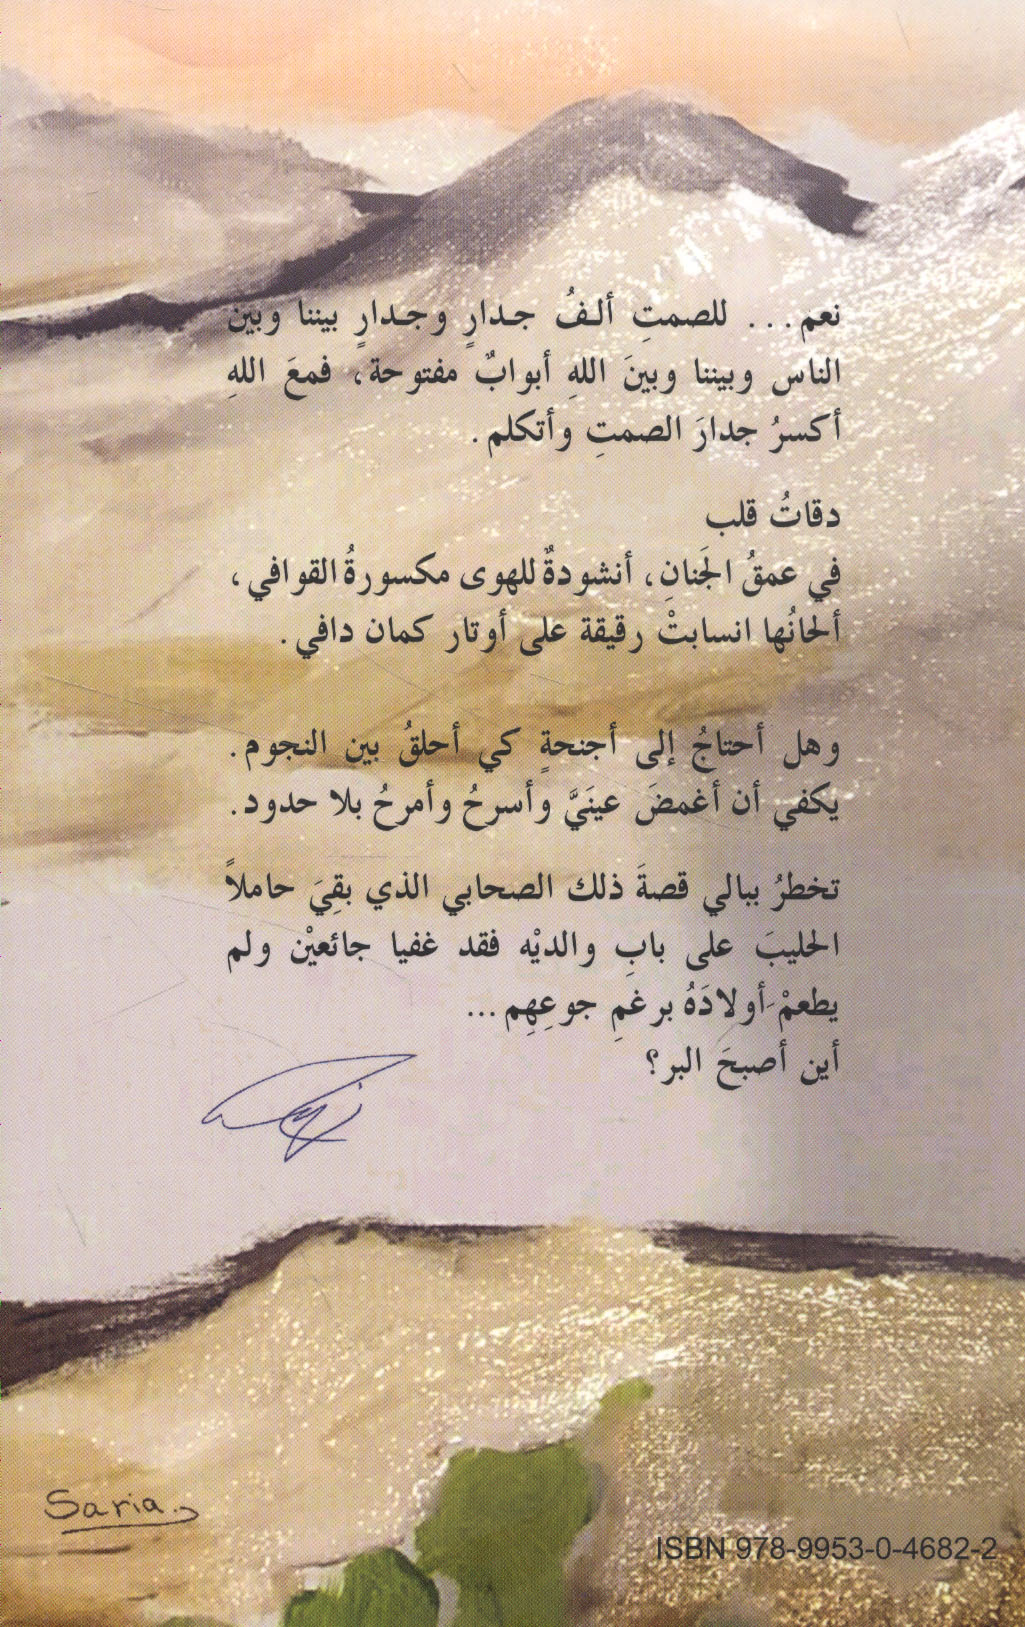 نعم... للصمتِ ألفُ جدارٍ وجدارٍ بيننا وبين
الناس وبيننا وبينَ اللهِ أبوابٌ مفتوحة، فمعَ اللهِ
أكسرُ جدارَ الصمتِ وأتكلم.
دقاتُ قلب
في عمقُ الجَنانِ، أنشودةٌ للهوى مكسورةُ القوافي،
ألحانُها انسابتْ رقيقة على أوتار كمان دافي.
وهل أحتاجُ إلى أجنحةٍ كي أحلقُ بين النجوم.
يكفي أن أغمضَ عينَيَّ وأسرحُ وأمرحُ بلا حدود.
تخطرُ ببالي قصةَ ذلك الصحابي الذي بقِيَ حاملاً
الحليبَ على بابِ والديْه فقد غفيا جائعيْن ولم
يطعمْ أولادَهُ برغمِ جوعِهِم...
أين أصبحَ البر؟
Saria
ISBN 978-9953-0-4682-2